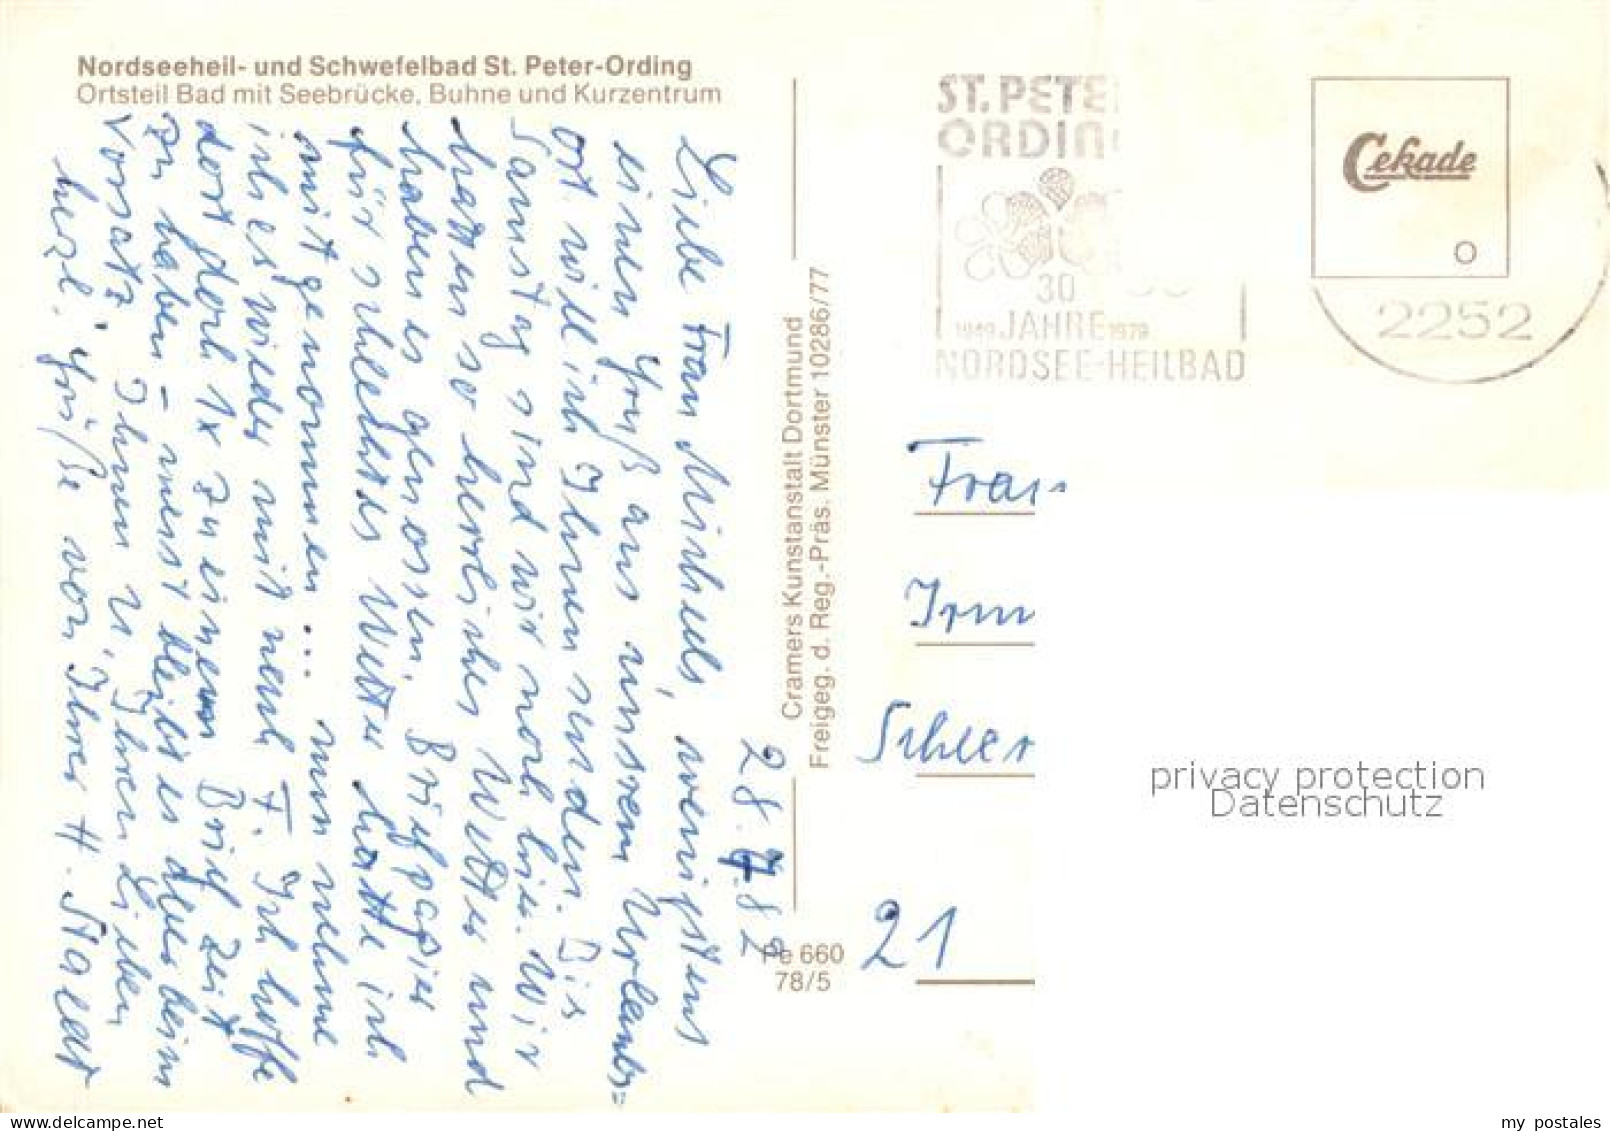 Nordseeheil- und Schwefelbad St. Peter-Ording
Ortsteil Bad mit Seebrücke, Buhne und Kurzentrum
28.7.82
Liebe Frau Micheels, wenigstens
einen Gruß aus unsrem Urlaubs=
ort will ich Ihnen senden. Bis
Samstag sind wir noch hier. Wir
hatten so herrliches Wetter und
haben es genossen. Briefpapier
für schlechtes Wetter hatte ich
mitgenommen ... nun nehme
ich es wieder mit nach F. Ich hoffe
dort doch 1x zu einem Brief Zeit
zu haben - meist bleibt es aber beim
Vorsatz. Ihnen u. Ihren Lieben
herzl. Grüße von Ihrer H.
Cramers Kunstanstalt Dortmund
Freigeg. d. Reg.-Präs. Münster 10286/77
Pe 660
78/5
ST. PETE
ORDIN
30
1949 JAHRE 1979
NORDSEE-HEILBAD
Cekade
2252
Frau
Irm
Scheer
21
privacy protection
Datenschutz
my postales